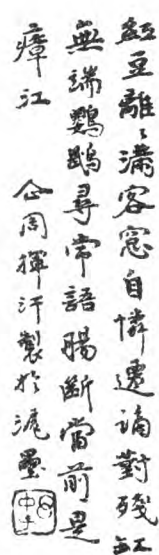 紅豆離〻滿客窓自憐遷謫對殘缸
無端鸚鵡尋常語腸斷當前是
瘴江 企周揮汗製於滬壘